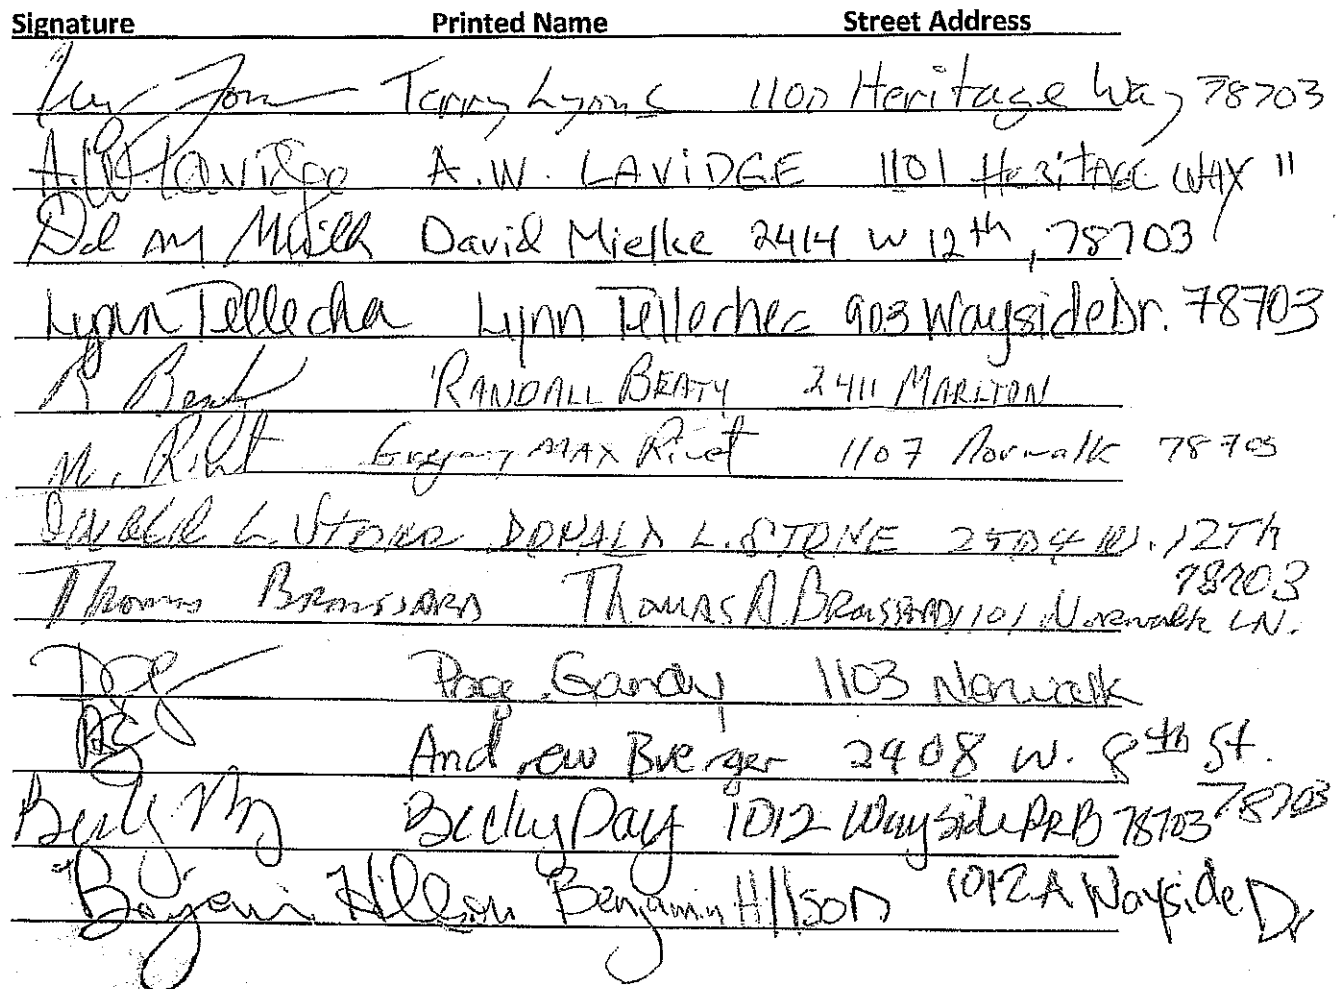 Signature Printed Name Street Address
Terry Lyons 1100 Heritage Way 78703
A.W. Lavidge A.W. LAVIDGE 1101 HERITAGE WAY "
David Mielke 2414 W 12th, 78703
Lynn Tellechea Lynn Tellechea 903 Wayside Dr. 78703
R Beaty RANDALL BEATY 2411 MARLTON
M. Gregory MAX 1107 Norwalk 78703
Donald L. Stone DONALD L. STONE 2504 W. 12Th
78703
Thomas Broussard Thomas A. Broussard 1101 Norwalk LN.
Page Gandy 1103 Norwalk
Andrew Buerger 2408 W. 8th St.
78703
Becky Day Becky Day 1012 Wayside Dr B 78703
Benjamin Hillson Benjamin Hillson 1012A Wayside Dr